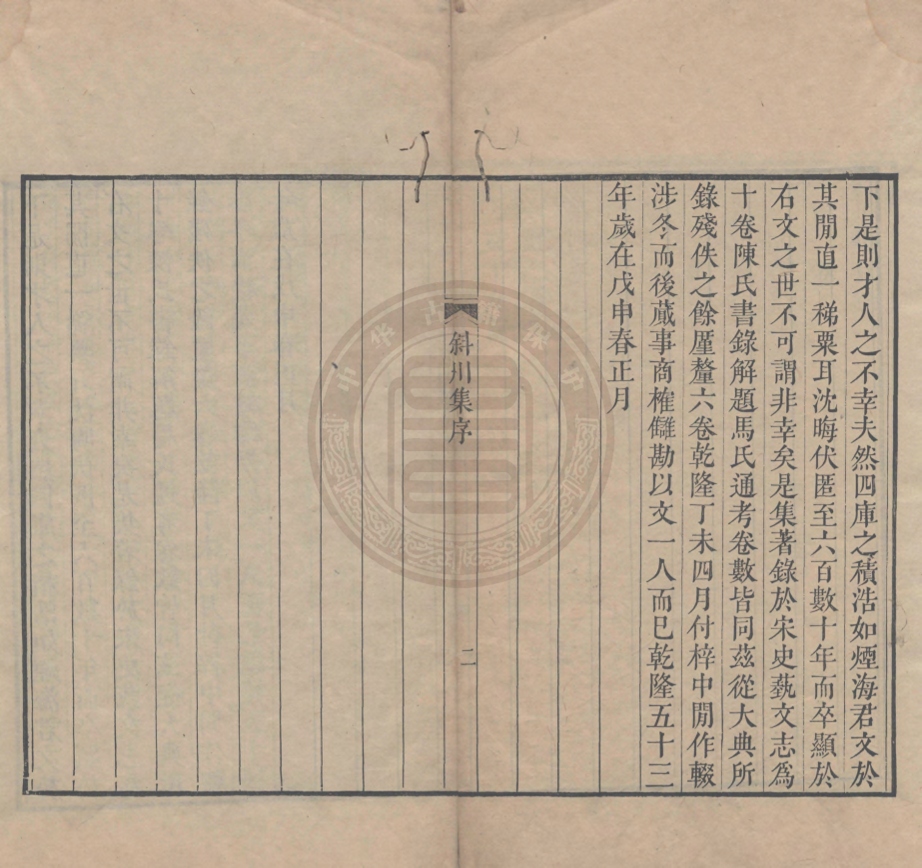 下是則才人之不幸夫然四庫之積浩如煙海君文於
其閒直一稊粟耳沈晦伏匿至六百數十年而卒顯於
右文之世不可謂非幸矣是集著錄於宋史蓺文志爲
十卷陳氏書錄解題馬氏通考卷數皆同茲從大典所
錄殘佚之餘厪釐六卷乾隆丁未四月付梓中閒作輟
涉冬而後蕆事商榷讎勘以文一人而已乾隆五十三
年歲在戊申春正月
斜川集序
二
中华古籍保护